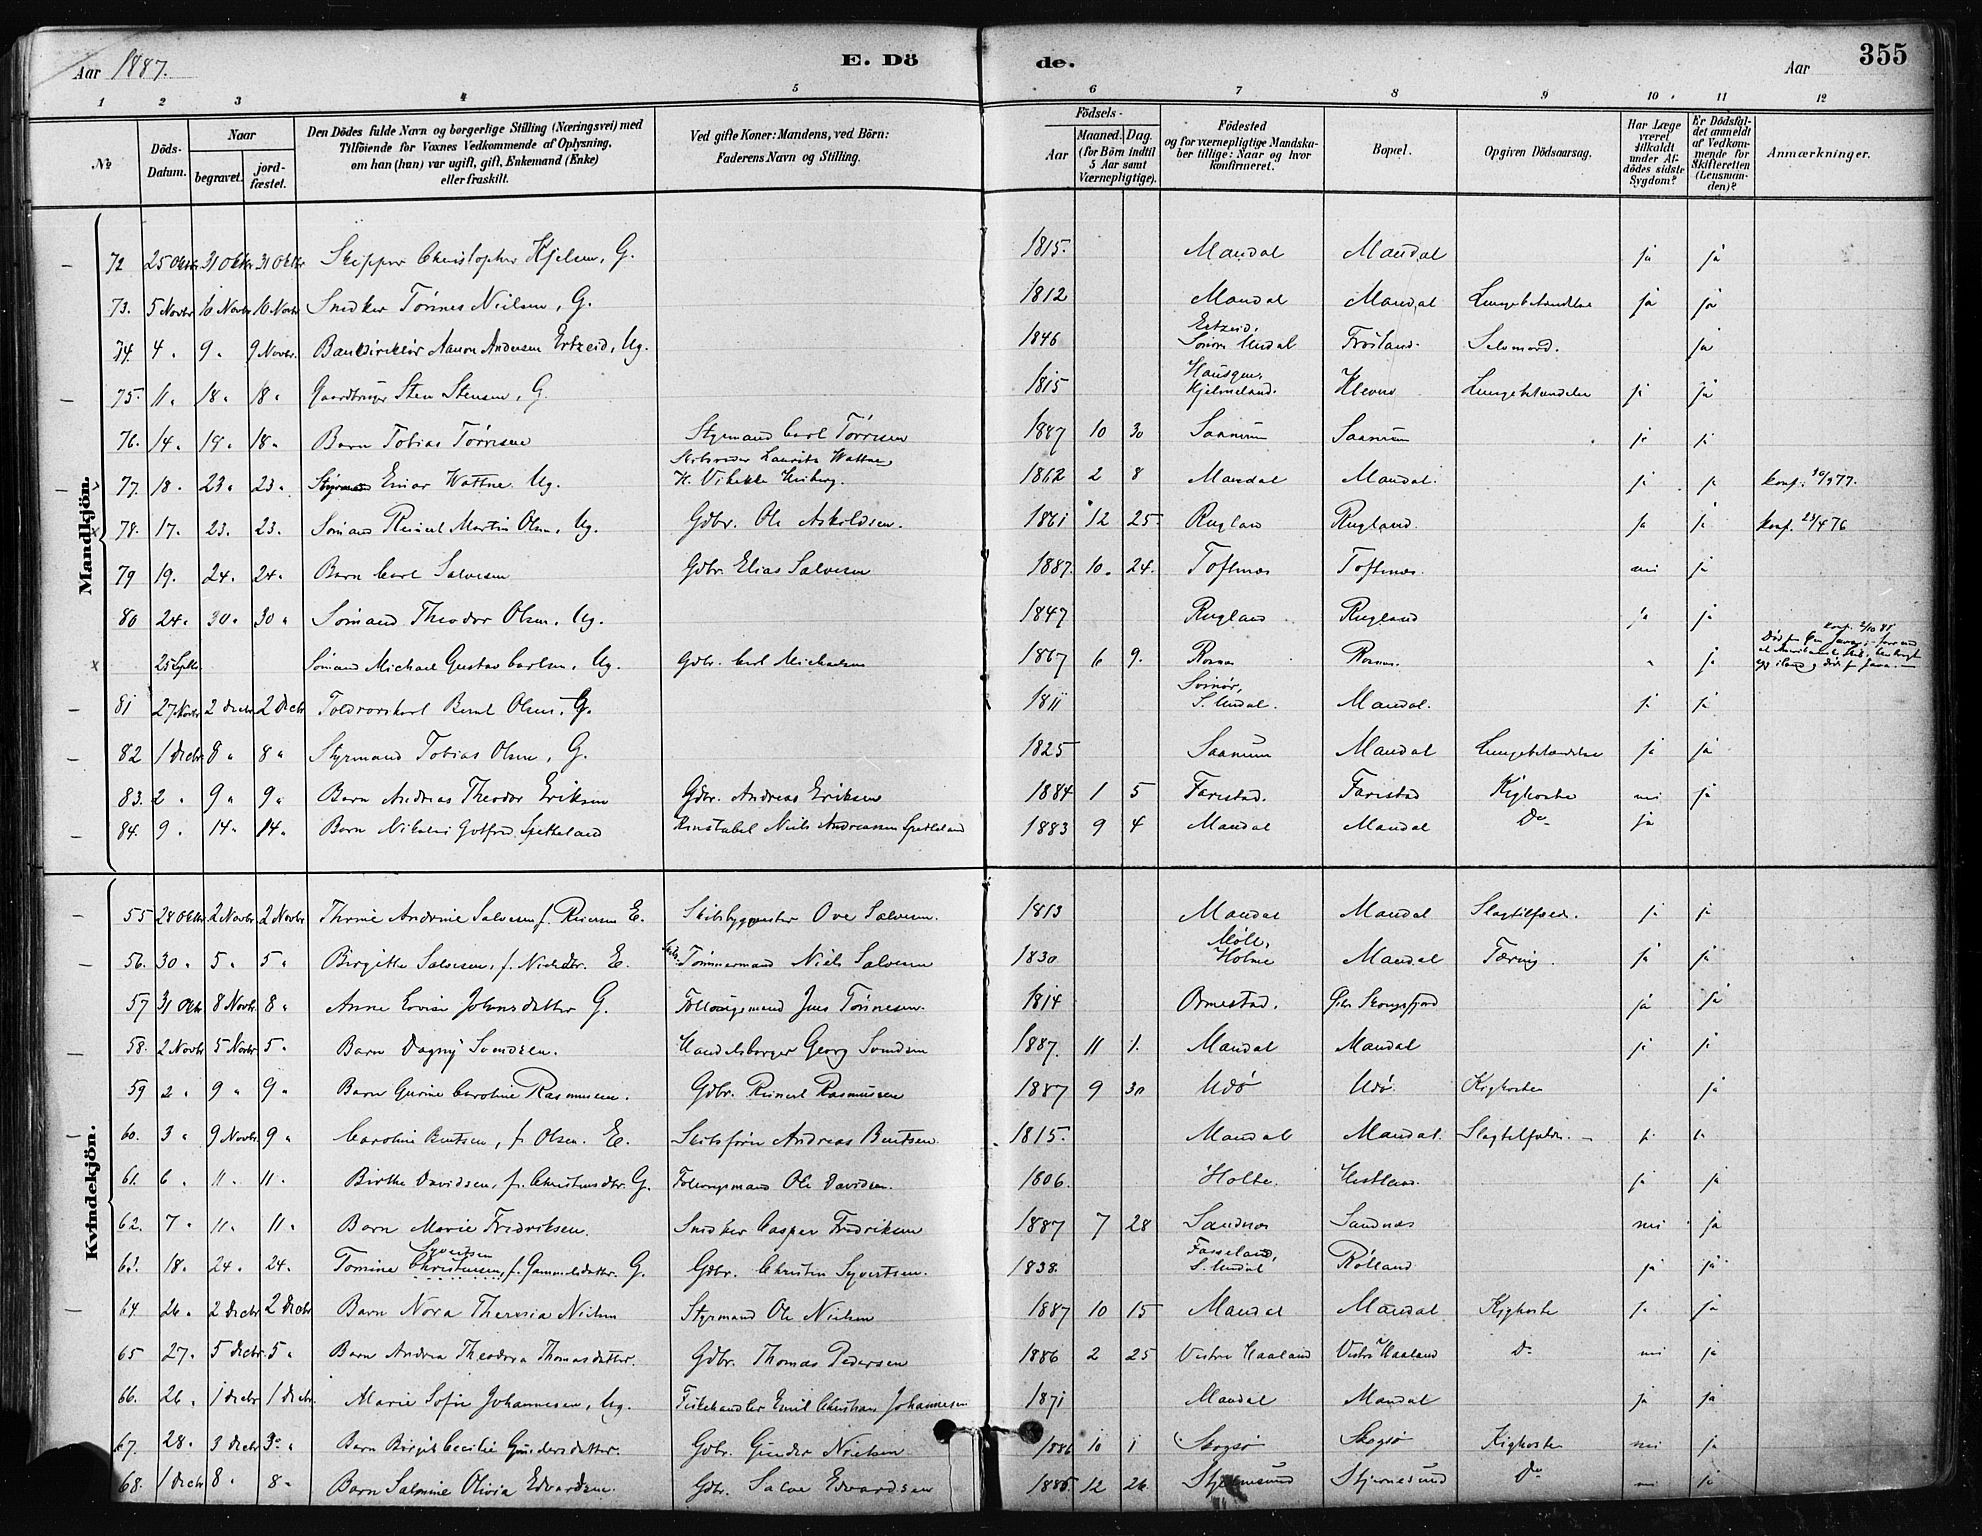 Aar 1887.
E. Dö
de.
Aar
355
1 2 3 4 5 6 7 8 9 10 11 12
No
Döds-Datum.
Naar
begravet.
jordfæstet.
Den Dödes fulde Navn og borgerlige Stilling (Næringsvei) med
Tilföiende for Voxnes Vedkommende af Oplysning,
om han (hun) var ugift, gift, Enkemand (Enke)
eller fraskilt.
Ved gifte Koner: Mandens, ved Börn:
Faderens Navn og Stilling.
Födsels-
Aar
Maaned. Dag.
(for Börn indtil
5 Aar samt
Værnepligtige).
Födested
og for værnepligtige Mandska-
ber tillige: Naar og hvor
konfirmeret.
Bopæl.
Opgiven Dödsaarsag.
Har Læge
været
tilkaldt
under Af-
dödes sidste
Sygdom?
Er Dödsfal-
det anmeldt
af Vedkom-
mende for
Skifteretten
(Lensman-
den)?
Anmærkninger.
Mandkjön.
72 25 Oktbr 31 Oktbr 31 Oktbr Skipper Christopher Kjelsen, G. 1815. Mandal Mandal ja ja
73. 5 Novbr 10 Novbr 10 Novbr Snedker Tønnes Nielsen, G. 1812 Mandal Mandal Lungebetændelse ja ja
74. 4 " 9 " 9 Novbr. Bankdirektør Aanon Andersen Ertzeid, Ug. 1846 Ertzeid, Søndre Undal Frøsland. Selvmord. ja
75. 11 " 18 " 18 " Gaardbruger Sten Stensen, G. 1815 Kjelmeland. Kleven Lungebetændelse ja ja
76. 14 " 19 " 18 " Barn Tobias Tørresen Styrmand Carl Tørresen 1887 10 30 Saanum Saanum ja ja
77. 18 " 23 " 23 " Einar Wattne Ug. Laurits Wattne 1862 2 8 Mandal Mandal. ja ja konf. 10/9 77.
78. 17 " 23. 23. Sømand Reinert Martin Olsen, Ug. Gdbr. Ole Askildsen. 1861 12 25. Rugland Rugland. ja ja konf. 23/4 76
79 19. 24. 24 " Barn Carl Salvesen Gdbr. Elias Salvesen 1887. 10. 24. Toftenes Toftenes. nei ja
80 24. 30. 30 " Sømand Theodor Olsen, Ug. 1847 Rugland Rugland ja ja
25 Septbr Sømand Michael Gustav Carlsen, Ug. Gdbr. Carl Michaelsen 1867 6 9. Rosnes Rosnes. " ja konf. 2/10 81
81 27 Novbr 2 Decbr 2 Decbr Toldrorskarl Bernt Olsen, G. 1811 Svinør, S. Undal. Mandal. ja ja
82 1 Decbr. 8 " 8 " Styrmand Tobias Olsen, G. 1825 Saanum Mandal Lungebetændelse ja ja
83. 2 " 9 " 9 " Barn Andreas Theodor Eriksen Gdbr. Andreas Eriksen 1884 1 5 Farestad. Farestad Kighoste nei ja
84. 9 " 14 " 14 " Barn Nikolai Gotfred Spetteland Konstabel Niels Andreassen Spetteland 1883 9 4 Mandal Mandal Do ja
Kvindekjön.
55 28 Oktbr 2 Novbr 2 Novbr Andrine Salvesen f. Reiersen E. Skibsbygmester Ove Salvesen. 1813 Mandal Mandal Slagtilfælde. ja ja
56. 30 " 5 " 5 " Birgitte Salvesen, f. Nielsdtr. E. Tømmermand Niels Salvesen 1830 Møll, Holme Mandal Tæring. ja ja
57 31 Oktbr 8 Novbr. 8 " Anne Lovise Johnsdatter G. Foderaadsmand Jens Tønnesen. 1814 Ormestad. Skougsfjord ja ja
58. 2 Novbr 5 Novbr 5 " Barn Dagny Svendsen. Handelsborger Georg Svendsen 1887. 11 1. Mandal Mandal ja ja
59 2 " 9 " 9 " Barn Gurine Caroline Rasmussen. Gdbr. Reinert Rasmussen 1887 9 30 Udø Udø. Kighoste ja
60. 3 " 9 Novbr. 9 " Caroline Berntsen, f. Olsen. E. Skibsfører Andreas Berntsen 1815. Mandal Mandal. Slagtilfælde. ja ja
61. 6 " 11 " 11 " Birthe Davidsen, f. Christensdtr. G. Ole Davidsen. 1806. Holte. ja ja
62. 7 " 11 " 11 " Barn Marie Fredriksen. Snedker Casper Fredriksen 1887 7 28 Sandnes Sandnes nei ja
63. 18 " 24 " 24 " Tomine Syvertsen Christensen, f. Gammelsdatter. G. Gdbr. Christen Syvertsen. 1838. Fasseland, S. Undal Rølland ja ja
64. 26 " 2 Decbr 2 Decbr Barn Nora Theresia Nielsen Styrmand Ole Nielsen 1887 10 15 Mandal Mandal Kighoste ja ja
65 27 " 5 Decbr. 5 " Barn Andrea Theodora Thomasdatter. Gdbr. Thomas Pedersen 1886 2 25 Vestre Haaland Vestre Haaland Do nei ja
66. 26 " 1 Decbr 1 Decbr. Marie Sofie Johannesen, Ug. Fiskehandler Emil Christian Johannesen 1871 Mandal Mandal ja ja
67. 28 " 3 Decbr 3 " Barn Birgit Cecilie Gundersdatter. Gdbr. Gunder Nielsen 1886 10 1 Skogsø Skogsø Kighoste nei ja
68. 1 Decbr 8 " 8 " Barn Salmine Olivia Edvardsen. Gdbr. Salve Edvardsen 1885 12 26. Stjernesund Stjernesund Do nei ja